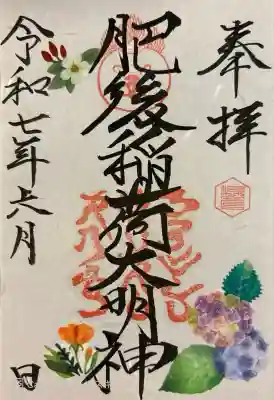 奉拝
肥後稲荷大明神
令和七年六月　日